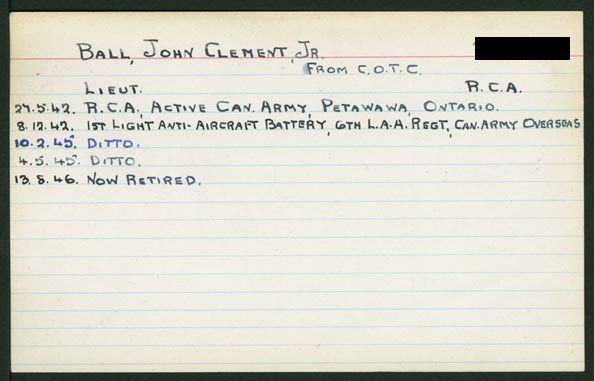 BALL, JOHN CLEMENT, JR.
FROM C.O.T.C.
LIEUT. R.C.A.
27.5.42. R.C.A., ACTIVE CAN. ARMY, PETAWAWA, ONTARIO.
8.12.42. 1ST LIGHT ANTI-AIRCRAFT BATTERY, 6TH L.A.A. REGT, CAN. ARMY OVERSEAS
10.2.45. DITTO.
4.5.45. DITTO.
13.8.46. NOW RETIRED.